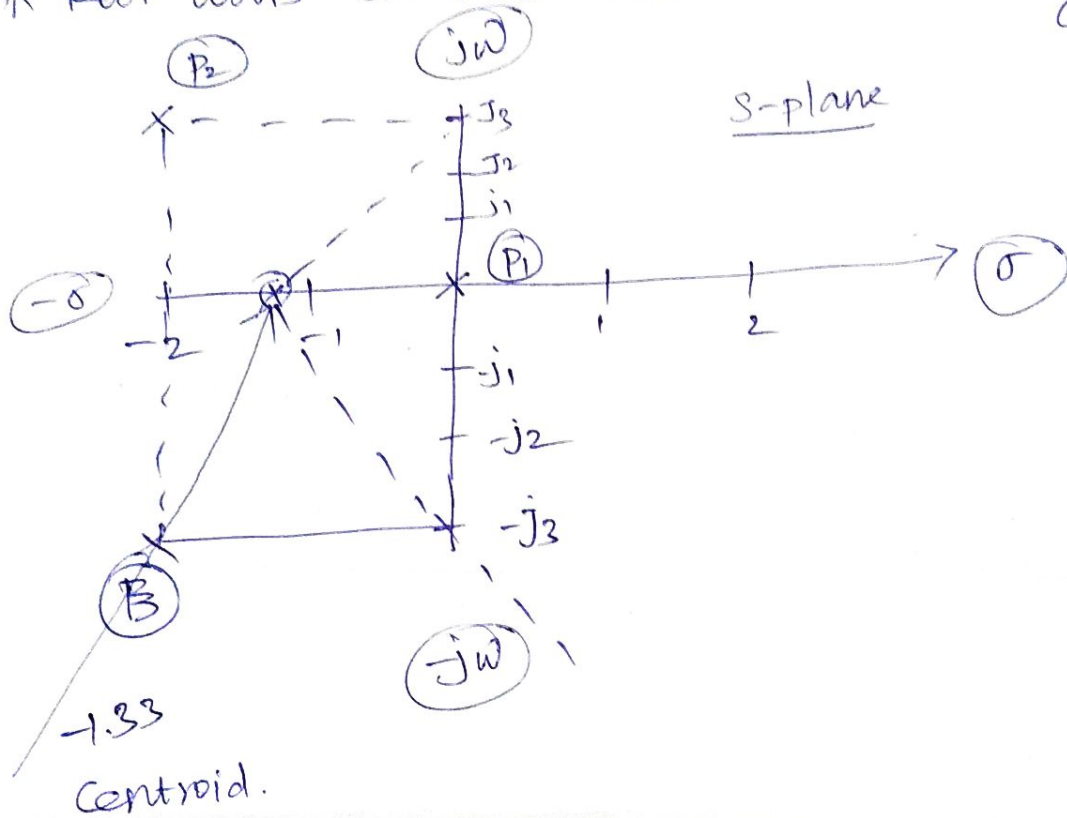 P2
jω
S-plane
J3
J2
j1
P1
-σ
σ
-2
-1
1
2
-j1
-j2
-j3
-jω
-1.33
Centroid.